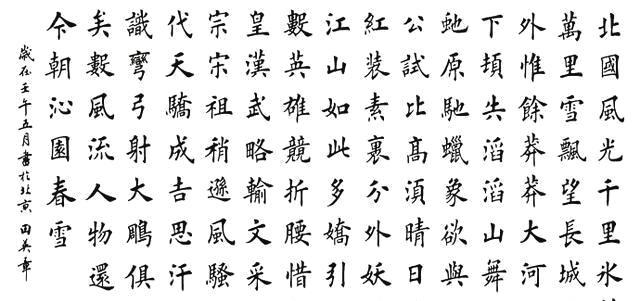 北國風光千里氷
萬里雪飄望長城
外惟餘莽莽大河
下頓失滔滔山舞
虵原馳蠟象欲與
公試比髙須晴日
紅裝素裹分外妖
江山如此多嬌引
數英雄競折腰惜
皇漢武略輸文采
宗宋祖稍遜風騷
代天驕成吉思汗
識彎弓射大鵰俱
矣數風流人物還
今朝沁園春雪
歲在壬午五月書於北京田英章